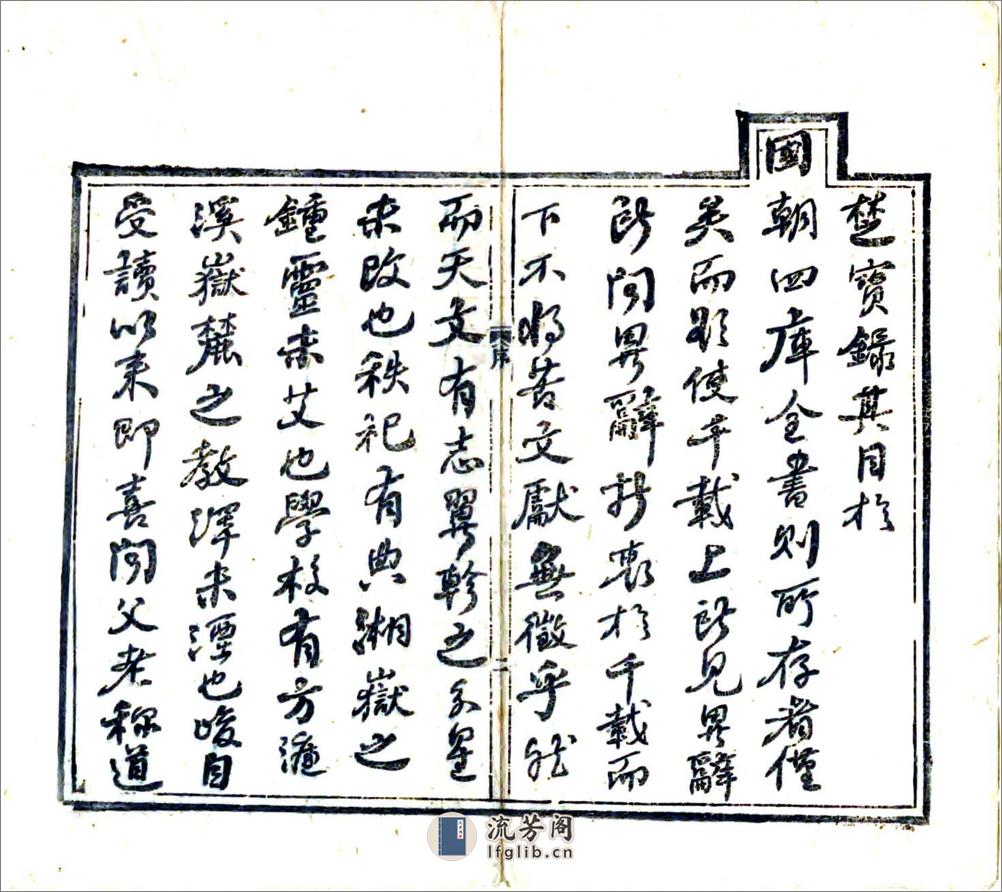 楚寳錄其目於
國朝四庫全書則所存者僅
矣而欲使千載上所見異辭
所聞異辭打喪於千載而
下不將苦文獻無徵乎然
而天文有志翼軫之分星
未改也秩祀有典湘嶽之
鍾靈未艾也學校有方濂
溪嶽麓之敎澤未湮也峻自
受讀以来即喜聞父老稱道
序
二
流芳阁
lfglib.cn